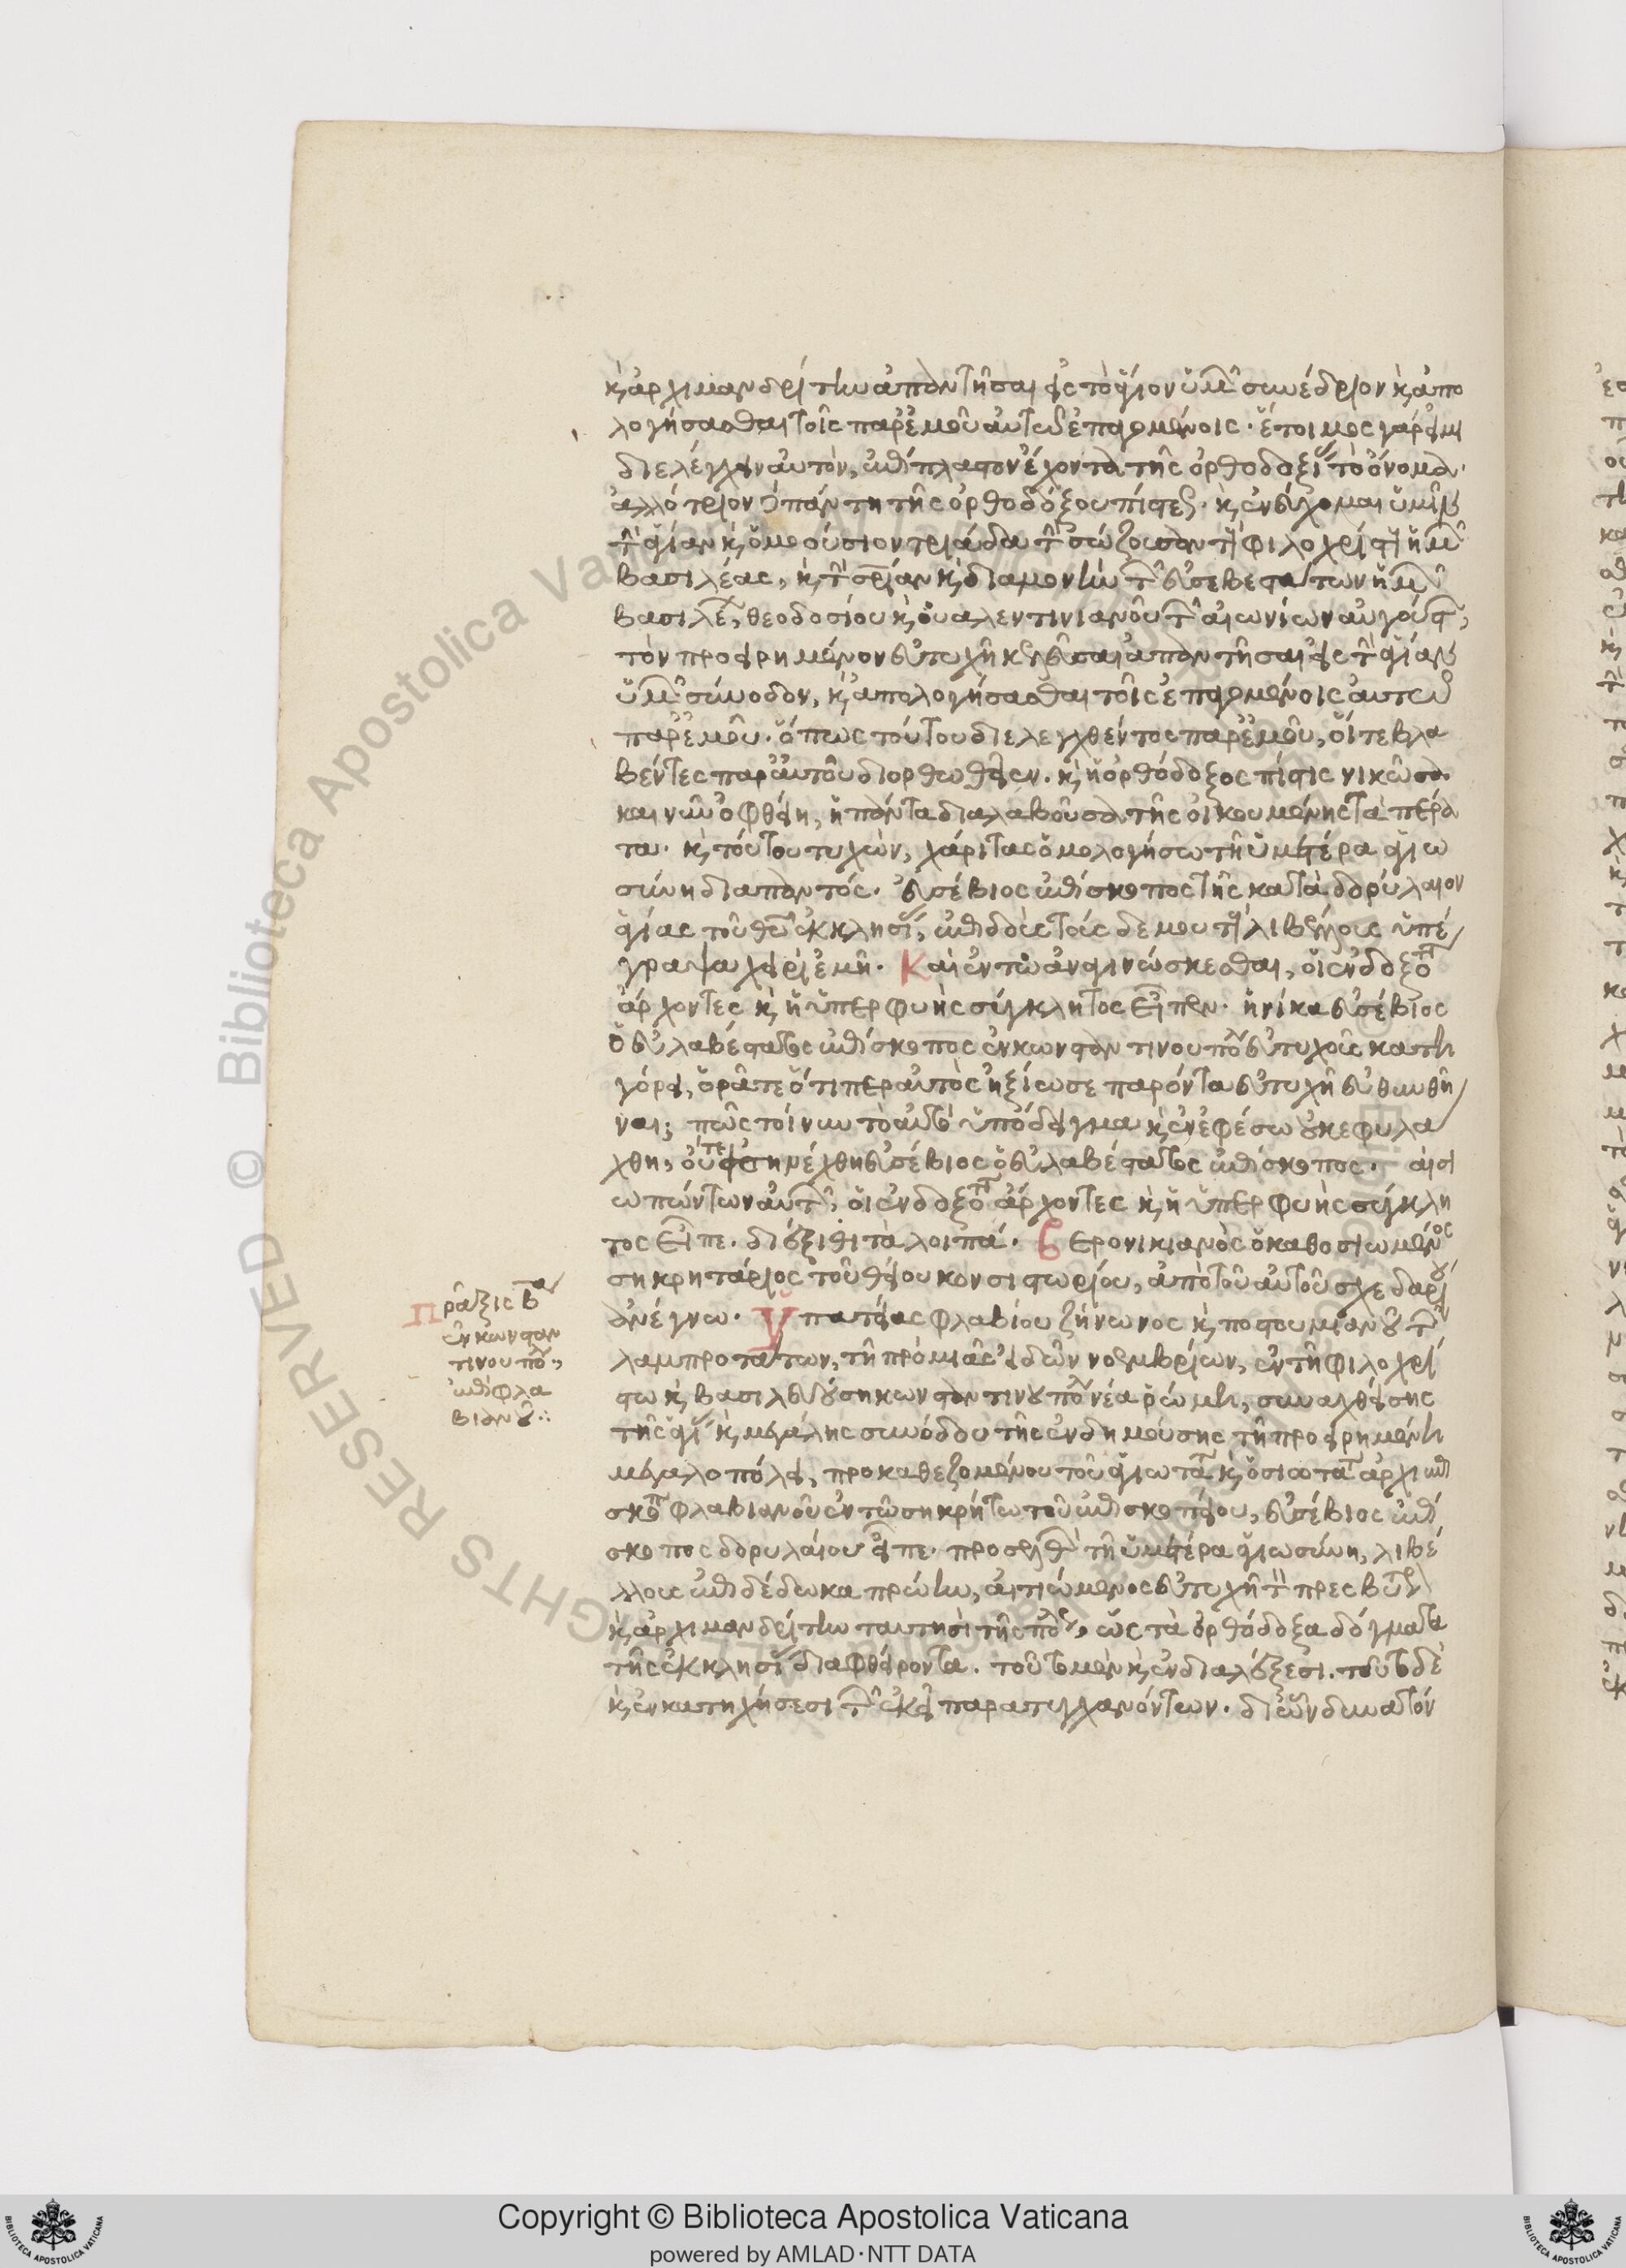 καὶ ἀρχιμανδρίτην ἀπαντῆσαι εἰς τὸ ἅγιον ὑμῶν συνέδριον καὶ ἀπο
λογήσασθαι τοῖς παρ' ἐμοῦ αὐτῷ ἐπαγομένοις. ἕτοιμος γάρ εἰμι
διελέγχειν αὐτὸν, ἐπίπλαστον ἔχοντα τῆς ὀρθοδοξίας τὸ ὄνομα.
ἀλλότριον ὄντα πάντη τῆς ὀρθοδόξου πίστεως. καὶ ἐνεύχομαι ὑμῖν
τὴν ἁγίαν καὶ ὁμοούσιον τριάδα τὴν σώζουσαν τοὺς φιλοχρίστους ἡμῶν
βασιλέας, καὶ τὴν σωτηρίαν καὶ διαμονὴν τῶν εὐσεβεστάτων ἡμῶν
βασιλέων, θεοδοσίου καὶ οὐαλεντινιανοῦ τῶν αἰωνίων αὐγούστων,
τὸν προειρημένον εὐτυχῆ κελεῦσαι ἀπαντῆσαι εἰς τὴν ἁγίαν
ὑμῶν σύνοδον, καὶ ἀπολογήσασθαι τοῖς ἐπαγομένοις αὐτῷ
παρ' ἐμοῦ. ὅπως τούτου διελεγχθέντος παρ' ἐμοῦ, οἵ τε βλα
βέντες παρ' αὐτοῦ διορθωθεῖεν. καὶ ἡ ὀρθόδοξος πίστις νικῶσα
καὶ νῦν ὀφθείη, ἡ πάντα διαλαβοῦσα τῆς οἰκουμένης τὰ πέρα
τα. καὶ τούτου τυχὼν, χάριτας ὁμολογήσω τῇ ὑμετέρα ἁγιω
σύνη διαπαντός. εὐσέβιος ἐπίσκοπος τῆς κατὰ δορύλαιον
ἁγίας τοῦ θεοῦ ἐκκλησίας, ἐπιδοὺς τούσδε μου τοὺς λιβέλλους ὑπέ
γραψα χειρὶ ἐμῆ. Καὶ ἐν τῶ ἀναγινώσκεσθαι, οἱ ἐνδοξότατοι
ἄρχοντες καὶ ἡ ὑπερφυὴς σύγκλητος εἶπεν. ἡνίκα εὐσέβιος
ὁ εὐλαβέστατος ἐπίσκοπος ἐν κωνσταντινουπόλει εὐτυχοῦς κατη
γόρει, ὁρᾶτε ὅτιπερ αὐτὸς ἠξίωσε παρόντα εὐτυχῆ εὐθυνθῆ
ναι; πῶς τοίνυν τὸ αὐτὸ ὑπόδειγμα καὶ ἐν ἐφέσω οὐκ ἐφυλά
χθη, οὔτε εἰσηνέχθη εὐσέβιος ὁ εὐλαβέστατος ἐπίσκοπος. σι
ωπώντων αὐτῶν, οἱ ἐνδοξότατοι ἄρχοντες καὶ ἡ ὑπερφυὴς σύγκλη
τος εἶπε. διέξιθι τὰ λοιπά. βερονικιανὸς ὁ καθοσιωμένος
σηκρητάριος τοῦ θείου κονσιστωρίου, ἀπὸ τοῦ αὐτοῦ σχεδαρίου
ἀνέγνω. Ὑπατείας φλαβίου ζήνωνος καὶ ποστουμιανοῦ τῶν
λαμπροτάτων, τῆ πρὸ μιᾶς εἰδῶν νοεμβρίων, ἐν τῆ φιλοχρί
στω καὶ βασιλευούση κωνσταντινουπόλει νέα ῥώμη, συναχθείσης
τῆς ἁγίας καὶ μεγάλης συνόδου τῆς ἐνδημούσης τῆ προειρημένη
μεγαλοπόλει, προκαθεζομένου τοῦ ἁγιωτάτου καὶ ὁσιωτάτου ἀρχιεπι
σκόπου φλαβιανοῦ ἐν τῶ σηκρήτω τοῦ ἐπισκοπείου, εὐσέβιος ἐπί
σκοπος δορυλαίου εἶπε. προσελθὼν τῆ ὑμετέρα ἁγιωσύνη, λιβέ
λλους ἐπιδέδωκα πρώην, αἰτιώμενος εὐτυχῆ τὸν πρεσβύτερον
καὶ ἀρχιμανδρίτην ταυτησὶ τῆς πόλεως, ὡς τὰ ὀρθόδοξα δόγματα
τῆς ἐκκλησίας διαφθείροντα. τοῦτο μὲν καὶ ἐν διαλέξεσι. τοῦτο δὲ
καὶ ἐν κατηχήσεσι τῶν ἐκεῖ παρατυγχανόντων. δι' ὧν δεινὸν
Πρᾶξις βα
ἐν κωνσταν
τινουπόλει,
ἐπὶ φλα
βιανοῦ
© Biblioteca Apostolica Vaticana
ALL RIGHTS RESERVED
Copyright © Biblioteca Apostolica Vaticana
powered by AMLAD·NTT DATA